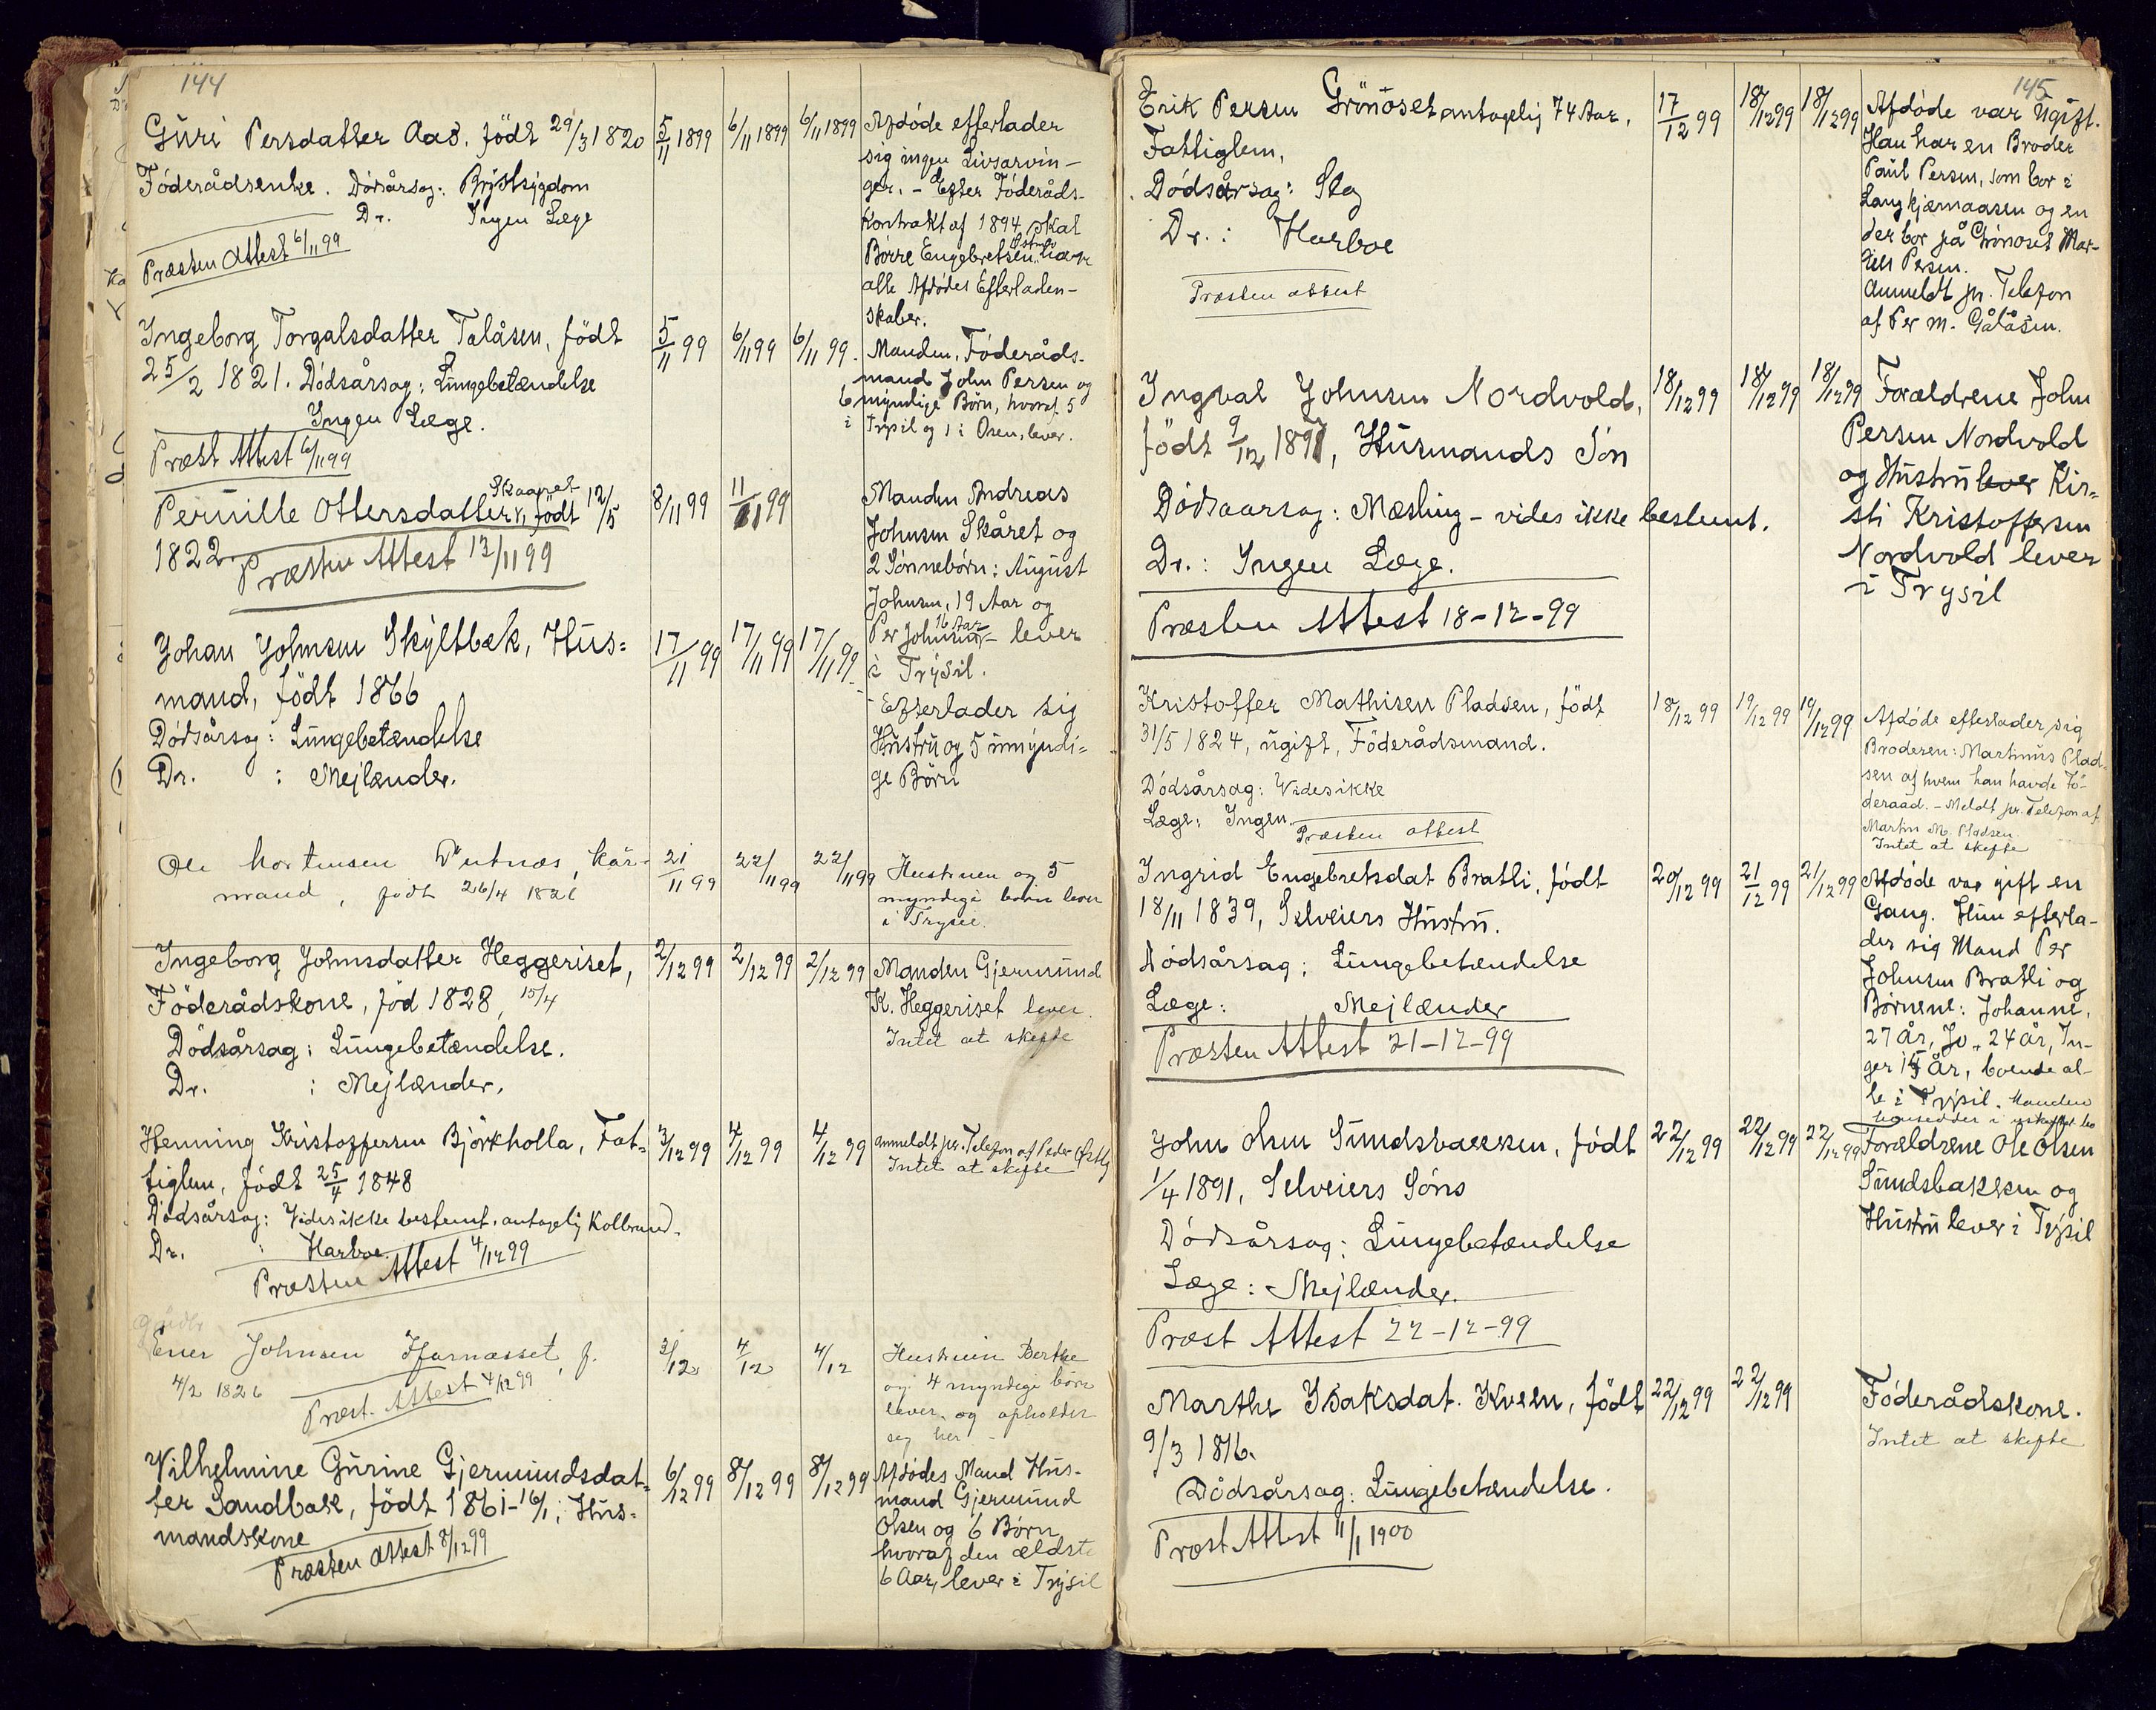 144
Guri Persdatter Aas. födt 29/3 1820 5/11 1899 6/11 1899 6/11 1899
Föderådsenke. Dödsårsag: Brÿstsÿgdom
Dr. Ingen Læge
Præsten Attest 6/11 99
Afdöde efterlader
sig ingen Livsarvin-
ger. - Efter Föderåds-
kontrakt af 1894 skal
Börre Engebretsen have
alle Afdödes Efterladen-
skaber.
Ingeborg Torgalsdatter Talåsen, födt 5/11 99 6/11 99 6/11 99.
25/2 1821. Dödsårsag: Lungebetændelse
Ingen Læge.
Præst Attest 6/11 99
Manden, Föderåds-
mand John Persen og
6 myndige Börn, hvoraf 5
i Trysil og 1 i Osen, lever.
Skaaret
Pernille Ottersdatter, födt 12/5 8/11 99 11/11 99
1822.
Præsten Attest 13/11 99
Manden Andreas
Johnsen Skåret og
2 Sönnebörn: August
Johnsen, 19 Aar og
16 Aar
Per Johnsen - lever
i Trÿsil.
Johan Johnsen Skÿltbæk, Hus= 17/11 99 17/11 99 17/11 99
mand, födt 1866
Dödsårsag: Lungebetændelse
Dr. : Mejlænder.
Efterlader sig
Hustru og 5 umÿndi=
ge Börn
Ole Mortensen Kår-
mand, födt 26/4 1826 21/11 99 22/11 99 22/11 99
Hustruen og 5
myndige börn lever
i Trysil.
Ingeborg Johnsdatter Heggeriset, 2/12 99 2/12 99 2/12 99
Föderådskone, föd 1828, 15/4
Dödsårsag: Lungebetændelse.
Dr. : Mejlænder.
Manden Gjermund
K. Heggeriset lever.
Intet at skifte
Henning Kristoffersen Björkholla, Fat- 3/12 99 4/12 99 4/12 99
tiglem, födt 25/4 1848
Dödsårsag: Vides ikke bestemt, antagelig Kolbrand.
Dr. : Harboe.
Præsten Attest 4/12 99
Anmeldt pr. Telefon af Peder Östby
Intet at skifte
Ener Johnsen f. 3/12 4/12 4/12
4/2 1826
Præst. Attest 4/12 99
Hustruen Berthe
og 4 myndige börn
lever og opholder
seg her -
Vilhelmine Gurine Gjermundsdat- 6/12 99 8/12 99 8/12 99
ter Sandbak, födt 1861-16/1; Hus=
mandskone
Præsten Attest 8/12 99
Afdödes Mand Hus-
mand Gjermund
Olsen og 6 Börn
hvoraf den ældste
6 Aar, lever i Trÿsil
145
Erik Persen Grönoset antagelig 74 Aar, 17/12 99 18/12 99 18/12 99
Fattiglem,
Dödsårsag: Slag
Dr.: Harboe
Præsten attest
Afdöde var ugift.
Han har en Broder
Paul Persen, som bor i
Langkjærnaasen og en
der bor på Grönoset Mar-
tin Persen.
Anmeldt pr. Telefon
af Per M. Galåsen.
Ingval Johnsen Nordvold, 18/12 99 18/12 99 18/12 99
födt 9/12 1897, Husmands Sön
Dödsaarsag: Mæsling - vides ikke bestemt.
Dr.: Ingen Læge.
Præsten Attest 18-12-99
Forældrene John
Persen Nordvold
og Hustru lever Kir=
sti Kristoffersen
Nordvold lever
i Trysil
Kristoffer Mathisen Pladsen, födt 18/12 99 19/12 99 19/12 99
31/5 1824, ugift, Föderådsmand.
Dödsårsag: Vides ikke
Læge: Ingen.
Præsten attest
Afdöde efterlader sig
Broderen: Martinus Plad-
sen af hvem han havde Fö-
deraad. - Meldt pr. Telefon af
Martin M. Pladsen.
Intet at skifte
Ingrid Engebretsdat Bratli, födt 20/12 99 21/12 99 21/12 99
18/11 1839, Selveiers Hustru.
Dödsårsag: Lungebetændelse
Læge: Mejlænder
Præsten Attest 21-12-99
Afdöde var gift en
Gang. Hun efterla-
der sig Mand Per
Johnsen Bratli og
Börnene: Johanne,
27 år, Jo, 24 år, In-
ger 15 År, boende al-
le i Trÿsil. Manden
hensidder i uskiftet bo
John Olsen Sundsbakken, födt 22/12 99 22/12 99 22/12 99
1/4 1891, Selveiers Söns
Dödsårsag: Lungebetændelse
Læge: - Mejlænder.
Præst Attest 22-12-99
Forældrene Ole Olsen
Sundsbakken og
Hustru lever i Trÿsil
Marthe Isaksdat. Kveen, födt 22/12 99 22/12 99
9/3 1816.
Dödsårsag: Lungebetændelse.
Præst Attest 11/1 1900
Föderådskone.
Intet at skifte